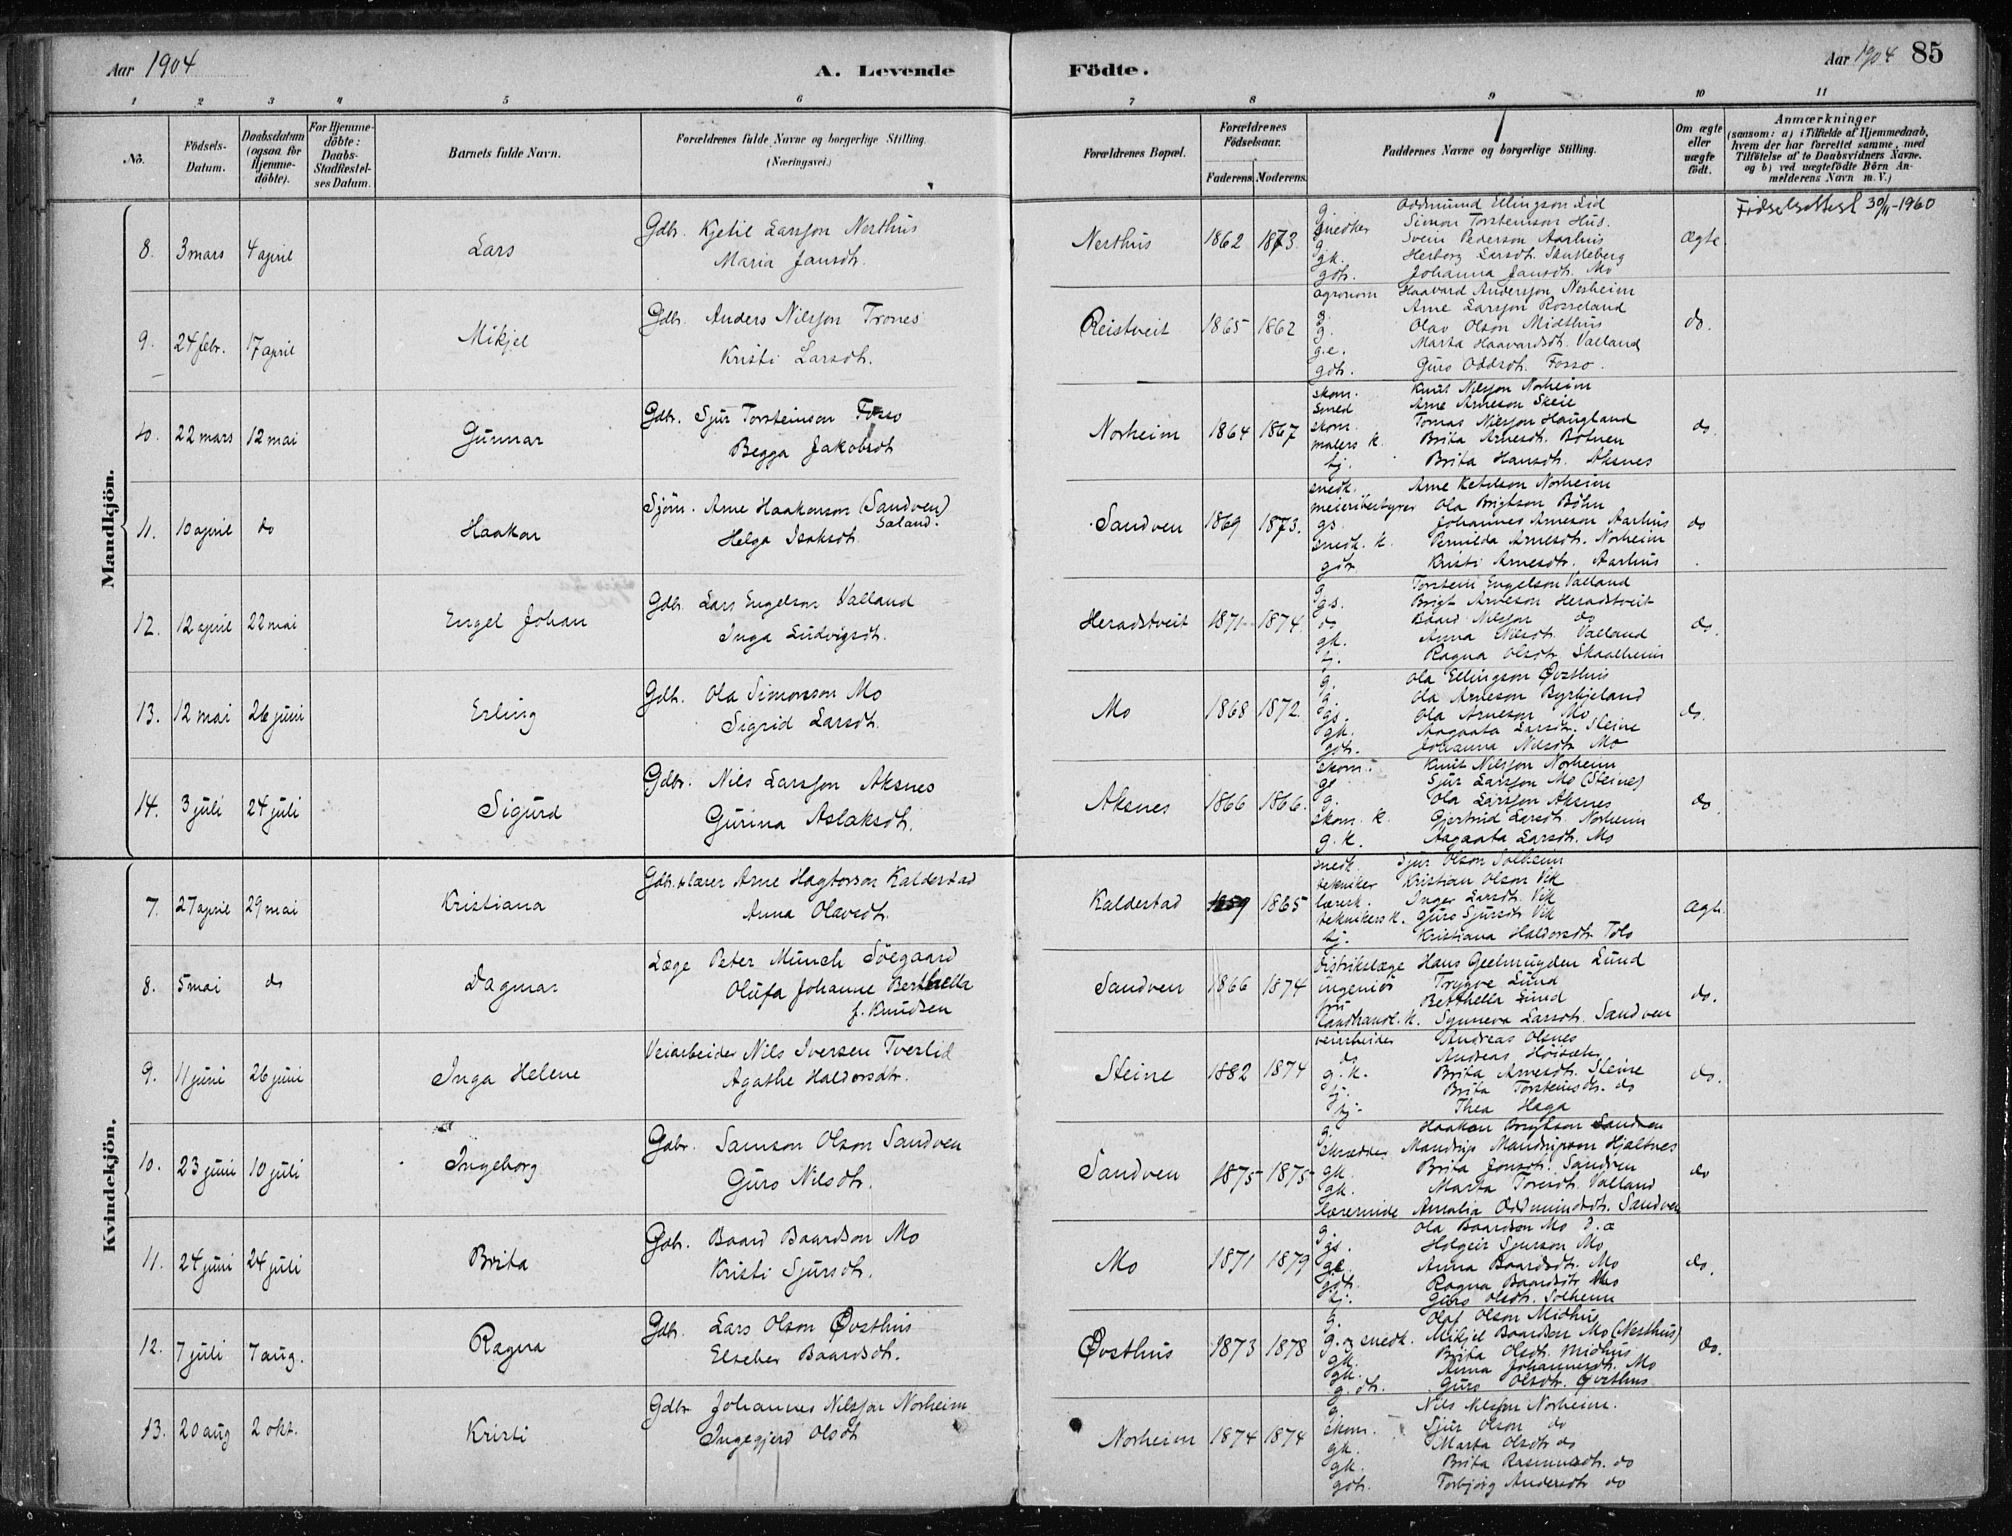 Aar 1904
A. Levende Födte.
Aar 1904 85
1 2 3 4 5 6 7 8 9 10 11
No.
Födsels-Datum.
Daabsdatum (ogsaa for Hjemme-döbte).
For Hjemme-döbte: Daabs-Stadfæstel-ses Datum.
Barnets fulde Navn.
Forældrenes fulde Navne og borgerlige Stilling. (Næringsvei.)
Forældrenes Bopæl.
Forældrenes Födselsaar.
Faderens. Moderens.
Faddernes Navne og borgerlige Stilling.
Om ægte eller uægte födt.
Anmærkninger
(saasom: a) i Tilfælde af Hjemmedaab, hvem der har forrettet samme, med Tilföielse af to Daabsvidners Navne, og b) ved uægtefödte Börn Anmelderens Navn m. V.)
Mandkjön.
8. 3 mars 4 april Lars
Gdbr. Kjetil Larsson Nesthus
Maria Jansdtr.
Nesthus 1862 1873.
g. Oddmund Ellingson Lid
snedker Simon Torsteinson Hus.
g. Svein Pederson Aarhus
gk. Herborg Larsdtr. Skutleberg
gdtr. Johanna Jansdtr. Mo
Ægte
Fødselsattest 30/11-1960
9. 24 febr. 17 april Mikjel
Gdbr. Anders Nilsson Trones
Kristi Larsdtr.
Reistveit 1865 1862
agronom Haavard Andersson Nesheim
g. Arne Larsson Rosseland
g. Olav Olson Midthus
g.e. Marta Haavardsdtr. Valland
gdtr. Guro Oddsdtr. Fosso.
do.
10. 22 mars 12 mai Gunnar
Gdbr. Sjur Torsteinson Fosso
Begga Jakobsdtr
Norheim 1864 1867
skom. Knut Nilsson Norheim
smed Arne Arneson Skeie
skom. Tomas Nilsson Haugland
malers k. Brita Arnesdtr. Bøhnen
tj. Brita Hansdtr. Aksnes
do
11. 10 april do Haakon
Sjöm. Arne Haakonson (Sandven)
Saland.
Helga Isaksdtr.
Sandven 1869 1873.
snedk. Arne Ketilson Norheim
meieribestyrer Ola Brigtson Bøhn
gs. Johannes Arneson Aarhus
snedk. k. Pernilda Arnesdtr. Norheim
gdtr Kristi Arnesdtr. Aarhus
do
12. 12 april 22 mai Engel Johan
Gdbr. Lars Engelson Valland
Inga Ludvigsdtr.
Heradstveit 1871 1874.
g. Torstein Engelson Valland
gs. Brigt Arneson Heradstveit
do Baard Nilsson do
gk. Anna Nilsdtr. Valland
tj. Ragna Olsdtr. Skaalheim
do.
13. 12 mai 26 juni Erling
Gdbr. Ola Simonson Mo
Sigrid Larsdtr.
Mo 1868 1872.
g. Ola Ellingson Øvsthus
g. Ola Arneson Byrkjeland
gs. Ola Arneson Mo
gk. Aagaata Larsdtr. Steine
gdtr. Johanna Nilsdtr. Mo
do.
14. 3 juli 24 juli Sigurd
Gdbr. Nils Larsson Aksnes
Gurina Aslaksdtr.
Aksnes 1866 1866.
skom. Knut Nilsson Norheim
ge Sjur Larsson Mo (Steine)
g. Ola Larsson Aksnes
skom. k. Gjertrud Larsdtr. Norheim
g. k. Aagaata Larsdtr. Mo
do.
Kvindekjön.
7. 27 april 29 mai Kristiana
Gdbr. + lærer Arne Hagtorson Kaldestad
Anna Olavsdtr.
Kaldestad 1859 1865
snedk. Sjur Olson Solheim
tekniker Kristian Olson Vik
lærerk. Inger Larsdtr. Vik
teknikers k. Guro Sjursdtr Vik
tj. Kristiana Haldorsdtr. Tolo
Ægte.
8. 5 mai do Dagmar
Læge Peter Münch Söegaard
Olufa Johanne Berthella
f. Knudsen
Sandven 1866 1874
distriktslæge Hans Geelmuyden Lund
ingeniör Trygve Lund
fru Berthella Lund
landhandl. k. Synneva Larsdtr. Sandven
do.
9. 11 juni 26 juni Inga Helene
Veiarbeider Nils Iversen Tverlid
Agathe Haldorsdtr.
Steine 1882 1874
veiarbeider Andreas Olsnes
do Andreas
g. k. Brita Arnesdtr. Steine
tj. Brita Torsteinsdtr. do
tj. Thea Haga
do.
10. 23 juni 10 juli Ingeborg
Gdbr. Samson Olson Sandven
Guro Nilsdtr.
Sandven 1875 1875
g. Haakon Brigtson Sandven
skrædder Mandrup Mandrupson Hjeltnes
gk. Brita Jonsdtr. Sandven
gk. Marta Tovesdtr. Valland
lærerinde Amalia Oddmundsdtr. Sandven
do
11. 24 juni 24 juli Brita
Gdbr. Baard Baardson Mo
Kristi Sjursdtr.
Mo 1871 1879
g. Ola Baardson Mo d.æ
gs. Holgeir Sjurson Mo
ge Anna Baardsdtr. Mo
gdtr. Ragna Baardsdtr Mo
tj. Guro Olsdtr. Solheim
do.
12. 7 juli 7 aug. Ragna
Gdbr. Lars Olson Øvsthus
Elseber Baardsdtr.
Øvsthus 1873 1878
g. Olaf Olson Midhus
g. og snedk. Mikjel Baardson Mo (Nesthus)
gk. Brita Olsdtr. Midhus
gk. Anna Johannesdtr. Mo
g. dtr. Guro Olsdtr. Øvsthus
do.
13. 20 aug 2 okt. Kristi
Gdbr Johannes Nilsson Norheim
Ingegjerd Olsdtr
Norheim 1874 1874
g. Nils Nilsson Norheim.
skom. Sjur Olson do
gk. Marta Olsdtr do
gk. Brita Rasmusdtr. do
gdtr. Torbjörg Andersdtr do